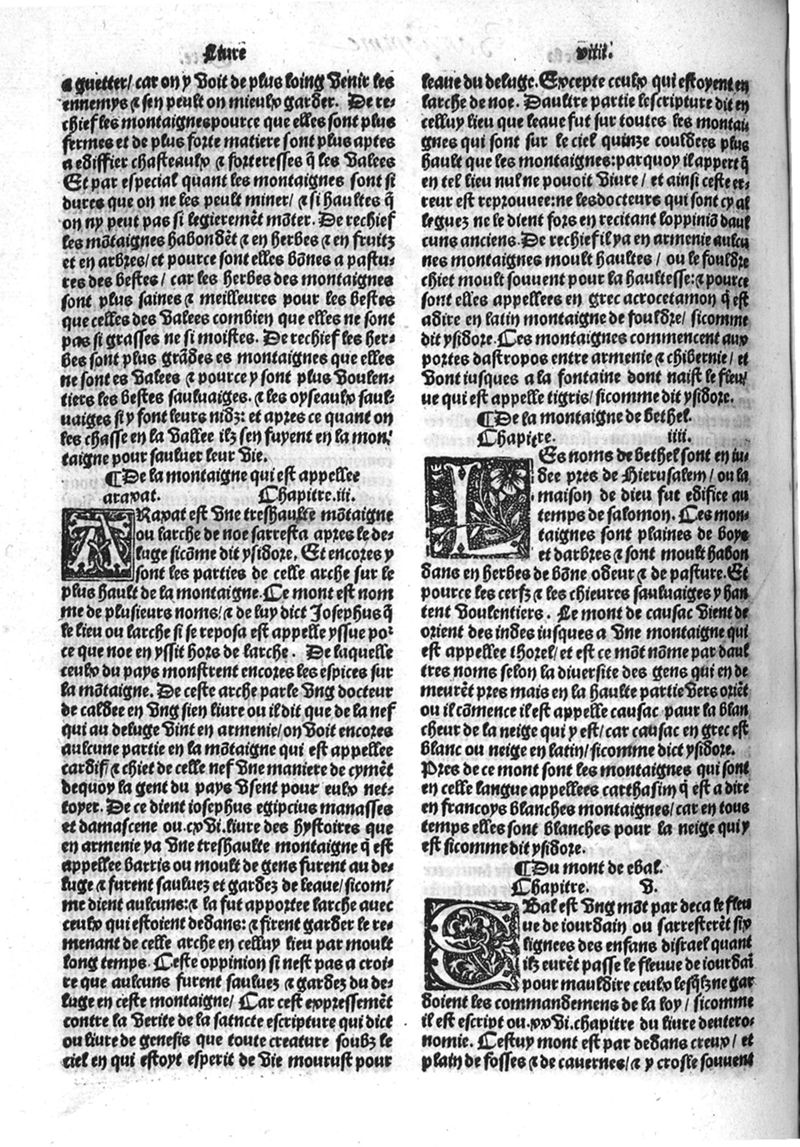 Liure
viii.
a guetter/ car on y voit de plus loing venir les
ennemys & sen peult on mieulx garder. De re-
chief les montaignes pource que elles sont plus
fermes et de plus forte matiere sont plus aptes
a ediffier chasteaulx & forteresses q̃ les valees
Et par especial quant les montaignes sont si
dures que on ne les peult miner/ & si haultes q̃
on ny peut pas si legieremẽt mõter. De rechief
les mõtaignes habondẽt & en herbes & en fruitz
et en arbres/ et pource sont elles bõnes a pastu-
res des bestes/ car les herbes des montaignes
sont plus saines & meilleures pour les bestes
que celles des valees combien que elles ne sont
pas si grasses ne si moistes. De rechief les her-
bes sont plus grãdes es montaignes que elles
ne sont es valees & pource y sont plus voulen-
tiers les bestes sauluaiges. & les oyseaulx saul-
uaiges si y font leurs nidz: et apres ce quant on
les chasse en la vallee ilz sen fuyent en la mon-
taigne pour sauluer leur vie.
¶De la montaigne qui est appellee
araxat. Chapitre.iii.
ARaxat est vne treshaulte mõtaigne
ou larche de noe sarresta apres le de-
luge sicõme dit ysidore. Et encores y
sont les parties de celle arche sur le
plus hault de la montaigne. Ce mont est nom
me de plusieurs noms/ & de luy dict Josephus q̃
le lieu ou larche si se reposa est appelle yssue po᷑
ce que noe en yssit hors de larche. De laquelle
ceulx du pays monstrent encores les espices sur
la mõtaigne. De ceste arche parle vng docteur
de caldee en vng sien liure ou il dit que de la nef
qui au deluge vint en armenie/ on voit encores
aulcune partie en la mõtaigne qui est appellee
cardif/ & chiet de celle nef vne maniere de cymẽt
dequoy la gent du pays vsent pour eulx net-
toyer. De ce dient iosephus egipcius manasses
et damascene ou.cxvi.liure des hystoires que
en armenie ya vne treshaulte montaigne q̃ est
appellee barris ou moult de gens furent au de-
luge & furent sauluez et gardez de leaue/ sicom/
me dient aulcuns: & la fut apportee larche auec
ceulx qui estoient dedans: & firent garder le re-
menant de celle arche en celluy lieu par moult
long temps. Ceste oppinion si nest pas a croi-
re que aulcuns furent sauluez & gardez du de-
luge en ceste montaigne/ Car cest expressemẽt
contre la verite de la saincte escripture qui dict
ou liure de genesis que toute creature soubz le
ciel en qui estoyt esperit de vie mourust pour
leaue du deluge. Excepte ceulx qui estoyent en
larche de noe. Daultre partie lescripture dit en
celluy lieu que leaue fut sur toutes les montai-
gnes qui sont sur le ciel quinze couldees plus
hault que les montaignes: parquoy il appert q̃
en tel lieu nul ne pouoit viure/ et ainsi ceste er-
reur est reprouuee: ne les docteurs qui sont cy al
leguez ne le dient fors en recitant loppiniõ daul
cuns anciens. De rechief il ya en armenie aulcu
nes montaignes moult haultes/ ou le fouldre
chiet moult souuent pour la haultesse: & pource
sont elles appellees en grec acrocetamon q̃ est
adire en latin montaigne de fouldre/ sicomme
dit ysidore. Ces montaignes commencent aux
portes dastropos entre armenie & chibernie/ et
vont iusques a la fontaine dont naist le fleu/
ue qui est appelle tigris/ sicomme dit ysidore.
¶De la montaigne de bethel.
Chapitre. iiii.
LEs noms de bethel sont en iu-
dee pres de Hierusalem/ ou la
maison de dieu fut edifice au
temps de salomon. Ces mon-
taignes sont plaines de boys
et darbres & sont moult habon
dans en herbes de bõne odeur & de pasture. Et
pource les cerfz & les chieures sauluaiges y han
tent voulentiers. Le mont de causac vient de
orient des indes iusques a vne montaigne qui
est appellee thorel/ et est ce mõt nõme par daul
tres noms selon la diuersite des gens qui en de
meurẽt pres mais en la haulte partie vers oriẽt
ou il cõmence il est appelle causac paur la blan
cheur de la neige qui y est/ car causac en grec est
blanc ou neige en latin/ sicomme dict ysidore.
Pres de ce mont sont les montaignes qui sont
en celle langue appellees carthasim q̃ est a dire
en francoys blanches montaignes/ car en tous
temps elles sont blanches pour la neige qui y
est sicomme dit ysidore.
¶Du mont de ebal.
Chapitre. v.
EBal est vng mõt par deca le fleu
ue de iourdain ou sarresterẽt six
lignees des enfans disrael quant
ilz eurẽt passe le fleuue de iourdaĩ
pour mauldire ceulx lesq̃lz ne gar
doient les commandemens de la loy/ sicomme
il est escript ou.xxvi.chapitre du liure deutero-
nomie. Cestuy mont est par dedans creux/ et
plain de fosses & de cauernes/ & y crosle souuent